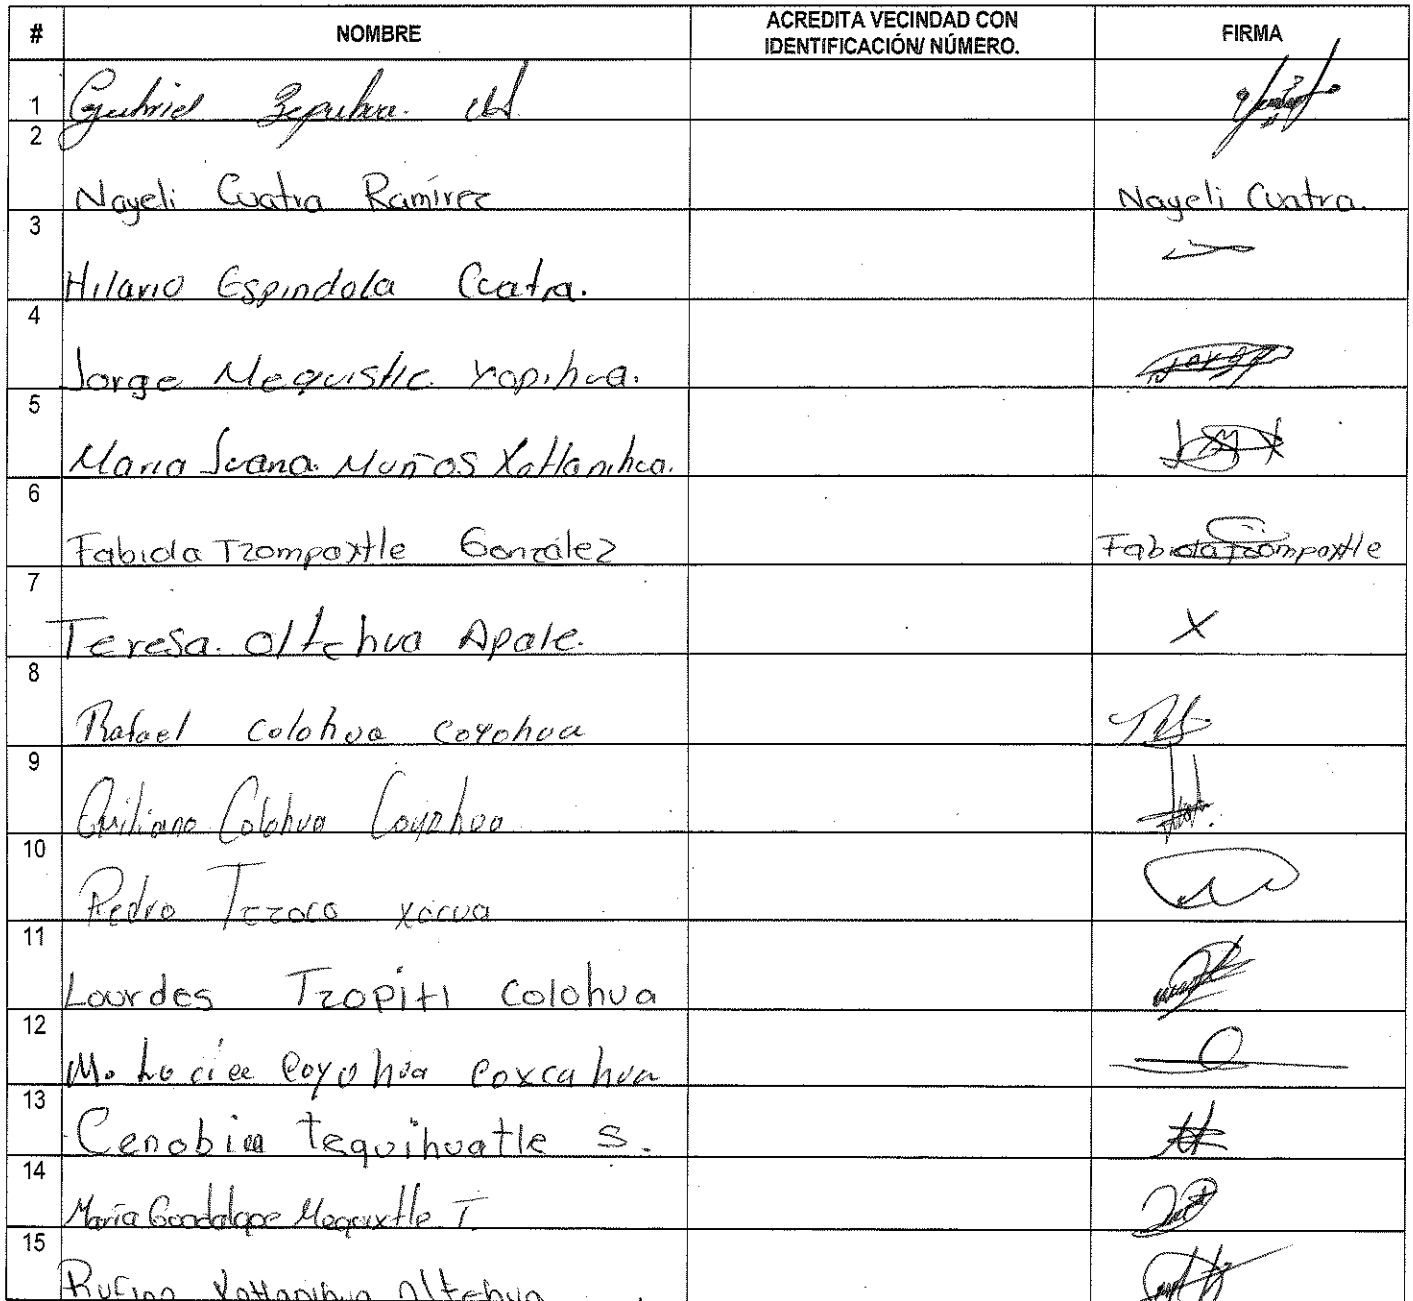 # NOMBRE ACREDITA VECINDAD CON IDENTIFICACIÓN/ NÚMERO. FIRMA
1 Gabriel
2 Nayeli Cuatra Ramírez Nayeli Cuatra.
3 Hilario Espindola Cuatra.
4 Jorge Mequistle Xopihua. Jorge
5 Maria Juana Muños Xatlanihua.
6 Fabiola Tzompaxtle González Fabiola Tzompaxtle
7 Teresa. Oltehua Apale. X
8 Rafael Colohua Coyohua
9 Emiliano Colohua Coyohua
10 Pedro Tezoco Xocua
11 Lourdes Tzopiti Colohua
12 M. Lucia Coyohua Coxcahua
13 Cenobia tequihuatle S.
14 María Guadalupe Mequixtle T.
15 Rufino Xatlanihua Oltehua